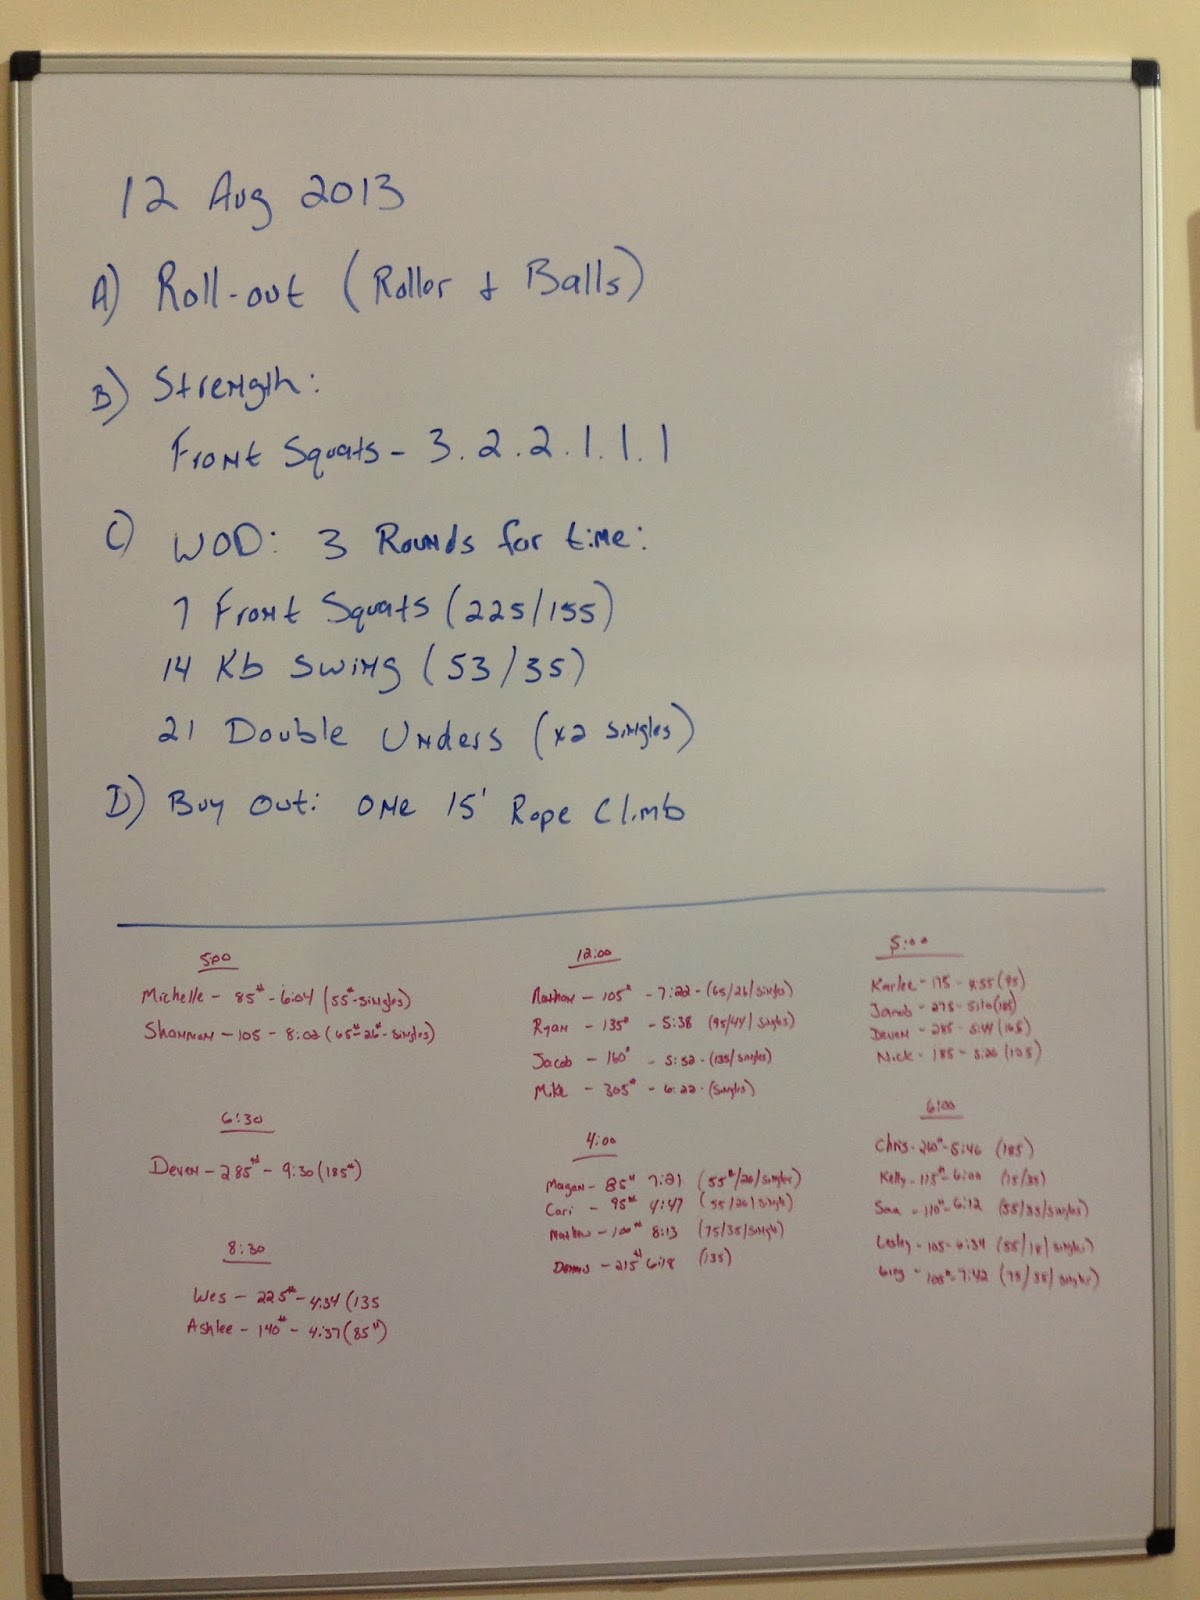 12 Aug 2013
A) Roll-out (Roller + Balls)
B) Strength:
Front Squats - 3.2.2.1.1.1
C) WOD: 3 Rounds for time:
7 Front Squats (225/155)
14 Kb Swing (53/35)
21 Double Unders (x2 singles)
D) Buy Out: one 15' Rope Climb
5:00
Michelle - 85# - 6:04 (55# - singles)
Shannon - 105 - 8:02 (65# - 26# - singles)
6:30
Deven - 285# - 9:30 (185#)
8:30
Wes - 225# - 4:34 (135
Ashlee - 140# - 4:37 (85#)
12:00
Nathan - 105# - 7:22 - (65/26/singles)
Ryan - 135# - 5:38 (95/44/singles)
Jacob - 160# - 5:52 - (135/singles)
Mike - 305# - 6:22 - (singles)
4:00
Megan - 85# 7:21 (55#/26/singles)
Cari - 95# 4:47 (55/26/single)
100# 8:13 (75/35/single)
Dennis - 215# 6:18 (135)
5:00
Karlee - 175 - 4:55 (95)
275 - (185)
Deven - 285 - 5:44 (165)
Nick - 185 - 5:26 (125)
6:00
Chris - 260# - 5:46 (185)
Kelly - 115# - 6:00 (75/35)
110# - 6:12 (55/35/singles)
Lesley - 105 - 6:34 (55/18/singles)
Greg - 105# - 7:42 (75/35/singles)